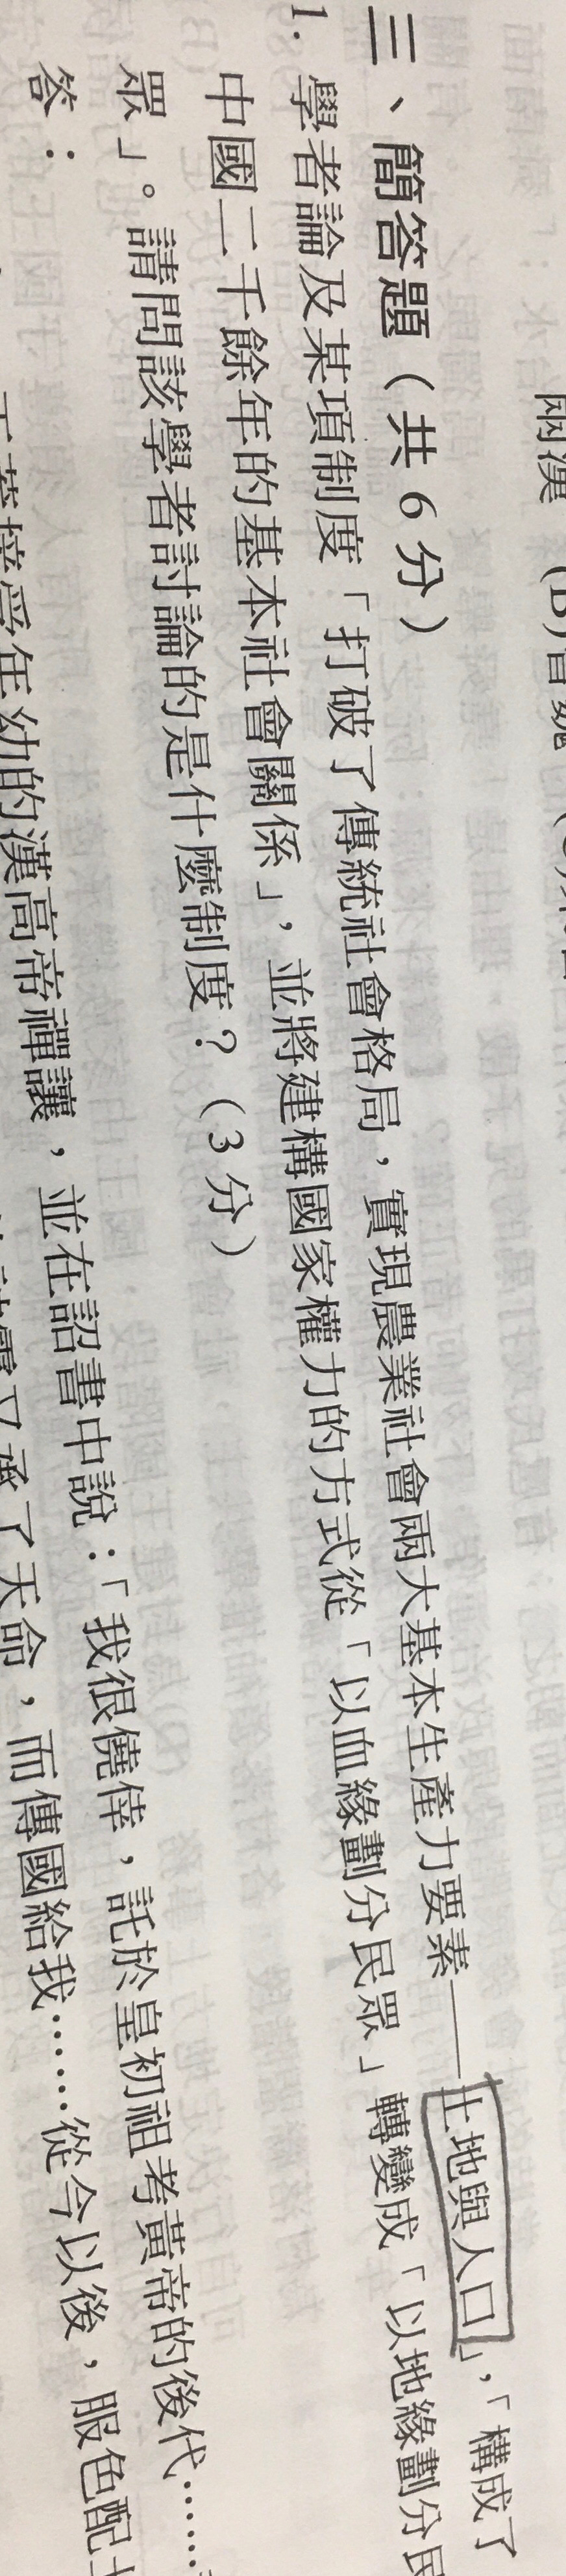 兩漢
三、簡答題（共6分）
1. 學者論及某項制度「打破了傳統社會格局，實現農業社會兩大基本生產力要素——土地與人口」，「構成了
中國二千餘年的基本社會關係」，並將建構國家權力的方式從「以血緣劃分民眾」轉變成「以地緣劃分民
眾」。請問該學者討論的是什麼制度？（3分）
答：
接受年幼的漢高帝禪讓，並在詔書中說：「我很僥倖，託於皇初祖考黃帝的後代……
又承了天命，而傳國給我……從今以後，服色配